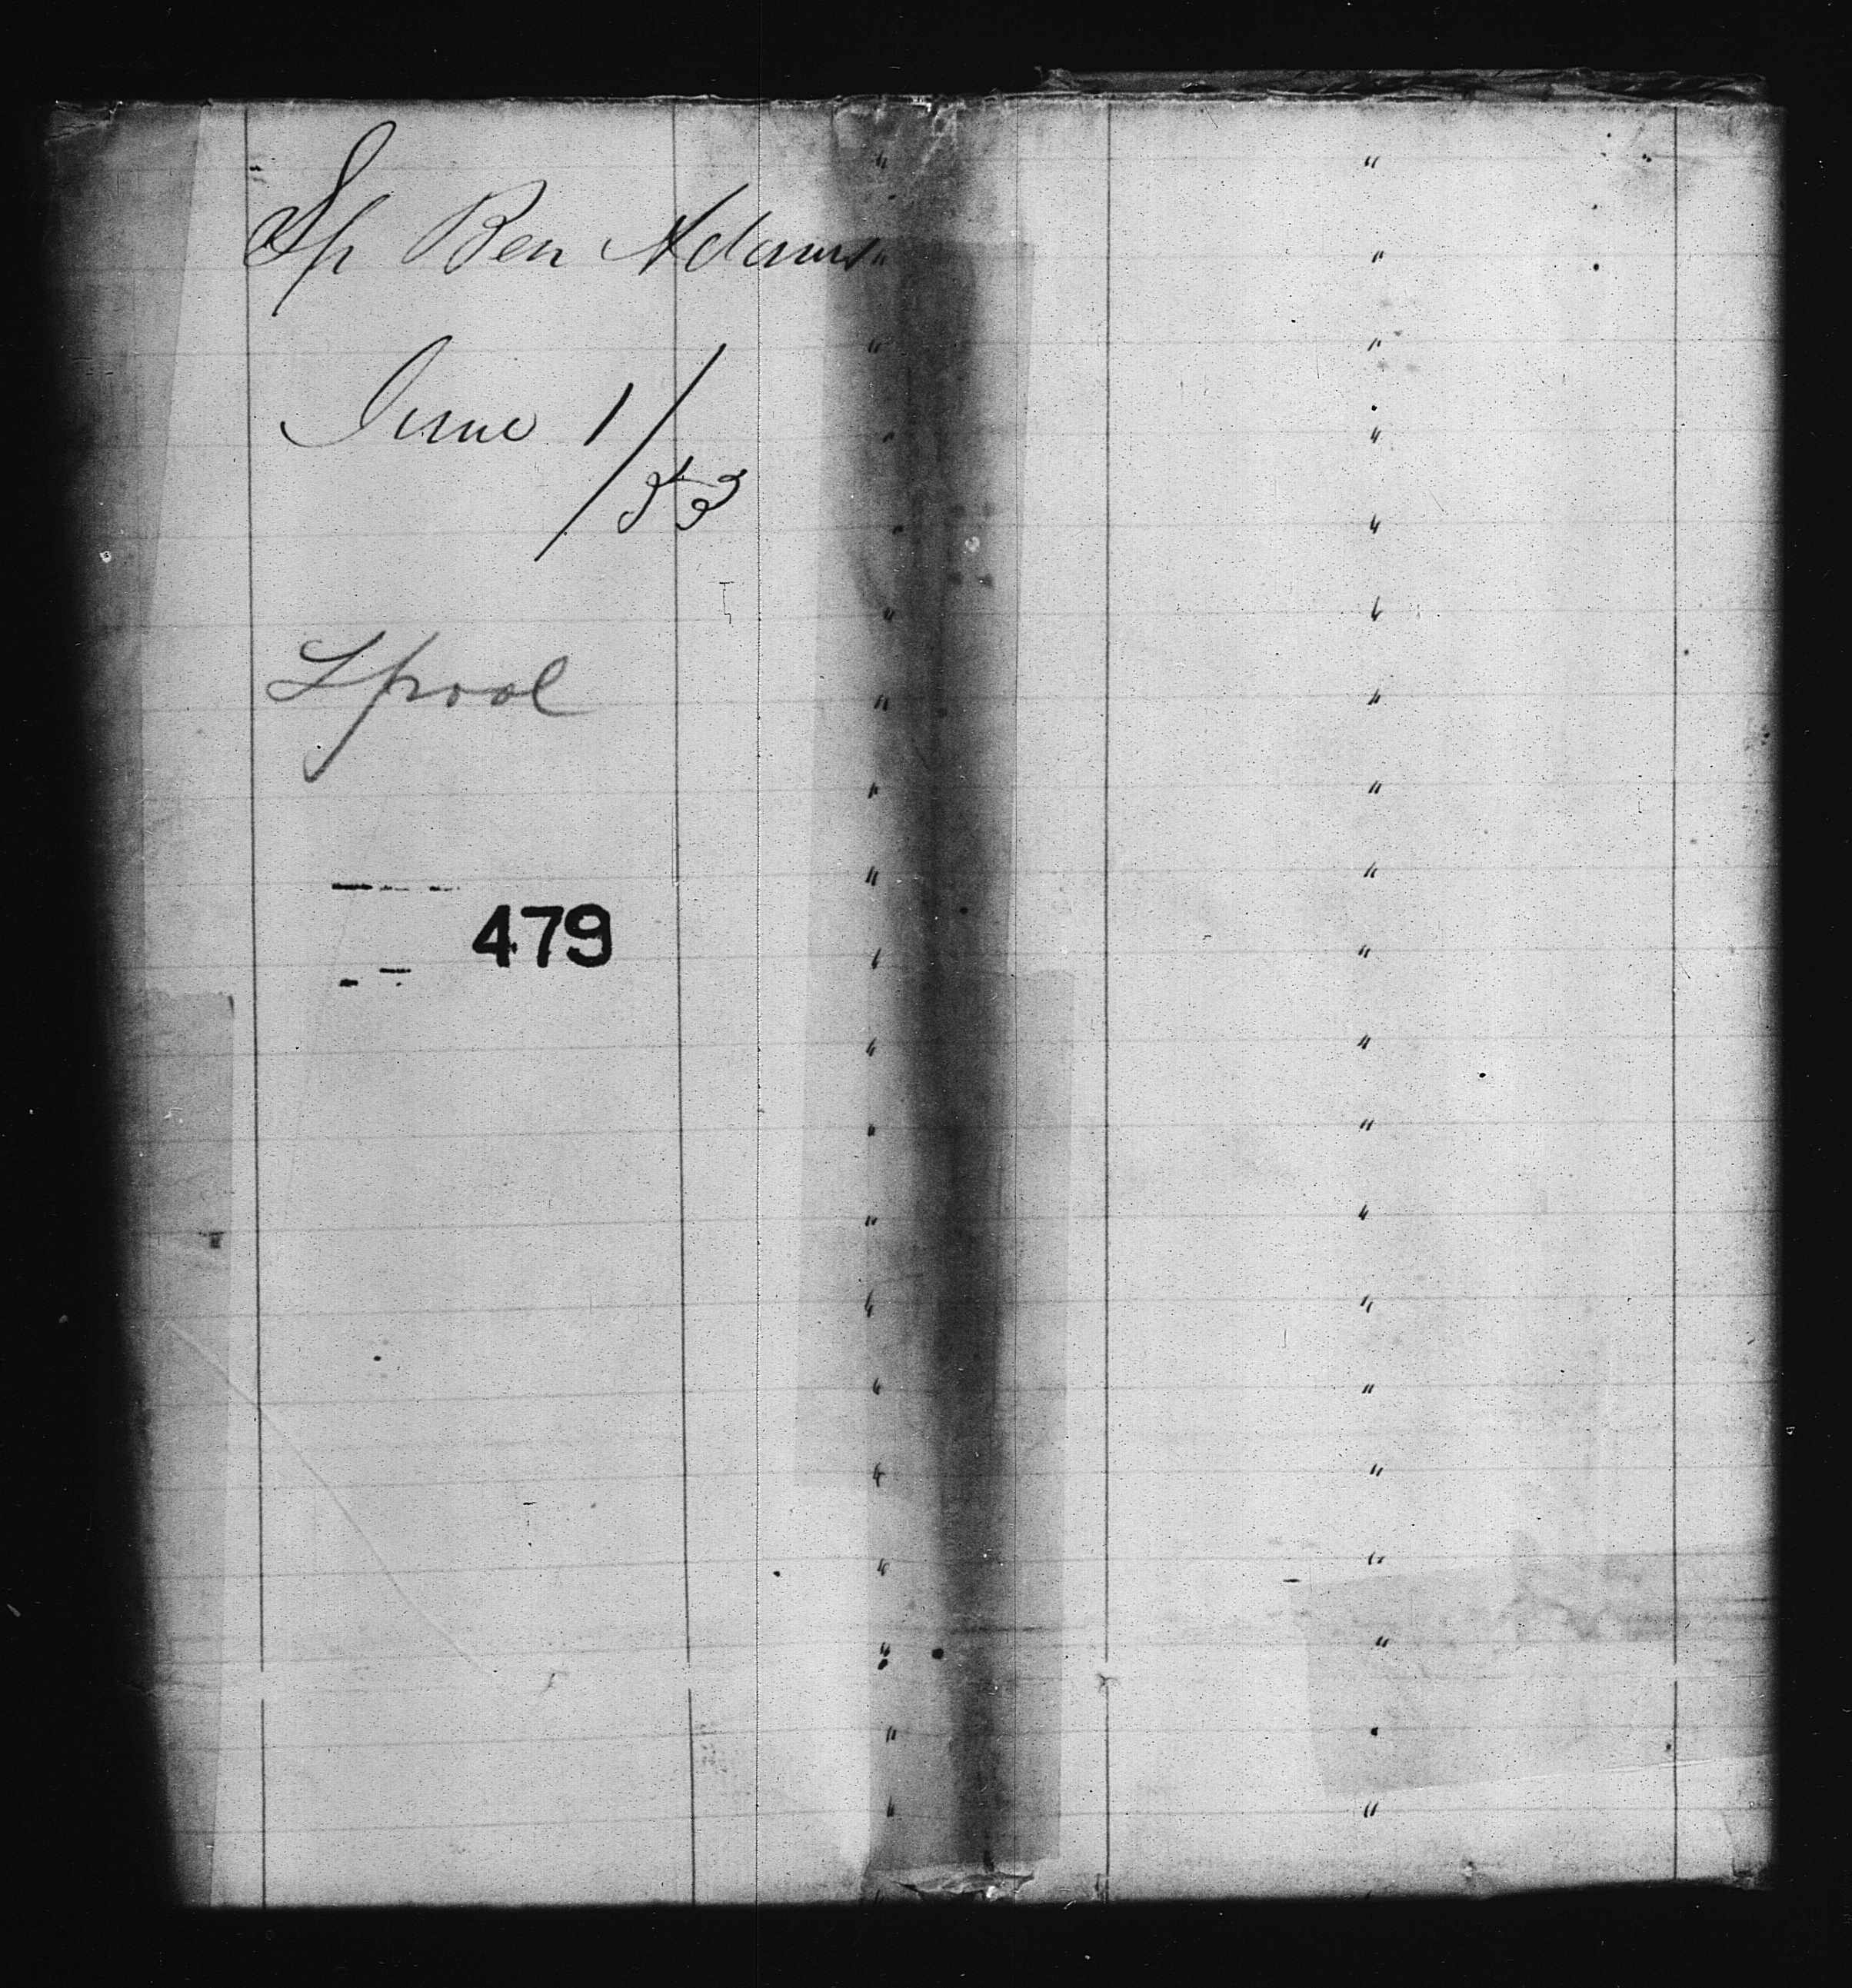 Sh Ben Adams
June 1/53
Lpool
479